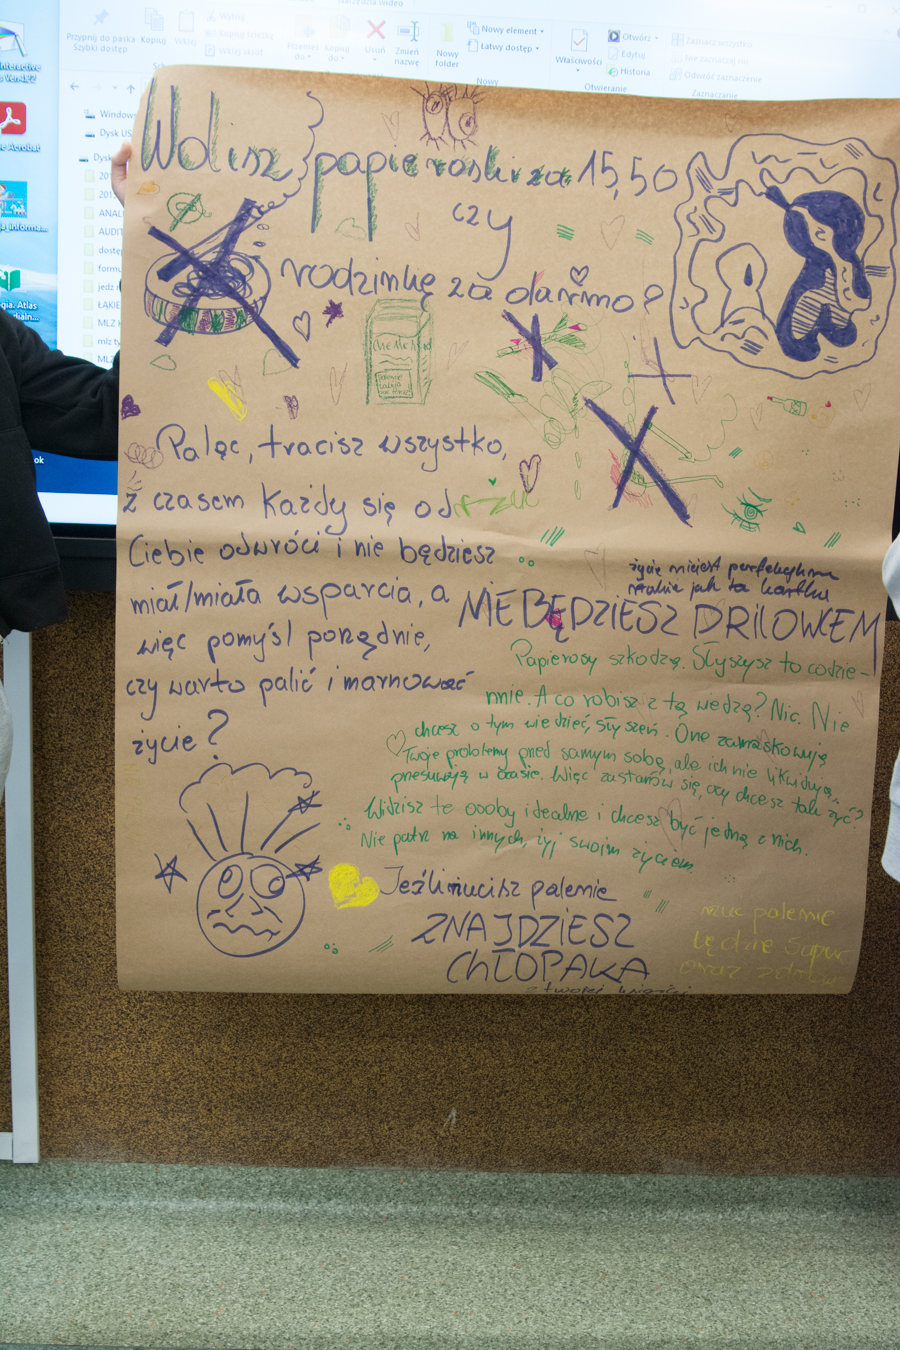 Przypnij do paska
Szybki dostęp
Kopiuj
Wklej
Wytnij
Kopiuj ścieżkę
Wklej skrót
Przenieś
do
Kopiuj
do
Usuń
Zmień
nazwę
Nowy
folder
Nowy element
Łatwy dostęp
Nowy
Właściwości
Otwórz
Edytuj
Historia
Otwieranie
Zaznacz wszystko
Nie zaznaczaj nic
Odwróć zaznaczenie
Zaznaczanie
Windows
Dysk US
Dysk
Acrobat
Atlas
Wolisz papieroski za 15,50
czy
rodzinkę za darmo?
Paląc, tracisz wszystko,
z czasem każdy się od
Ciebie odwróci i nie będziesz
miał/miała wsparcia, a
więc pomyśl porządnie,
czy warto palić i marnować
życie?
życie nie jest perfekcyjne
jak ta kartka
NIE BĘDZIESZ DRILOWCEM
Papierosy szkodzą. Słyszysz to codzie-
nnie. A co robisz z tą wiedzą? Nic. Nie
chcesz o tym wiedzieć, słyszeń. One zamaskowują
Twoje problemy pred samym sobą, ale ich nie likwidują,
przesuwają w czasie. Więc zastanów się, czy chcesz tak żyć?
Widzisz te osoby idealne i chcesz być jedną z nich.
Nie patrz na innych, żyj swoim życiem
Jeśli rzucisz palenie
ZNAJDZIESZ
CHŁOPAKA
z twojej
rzuć palenie
będzie super
oraz